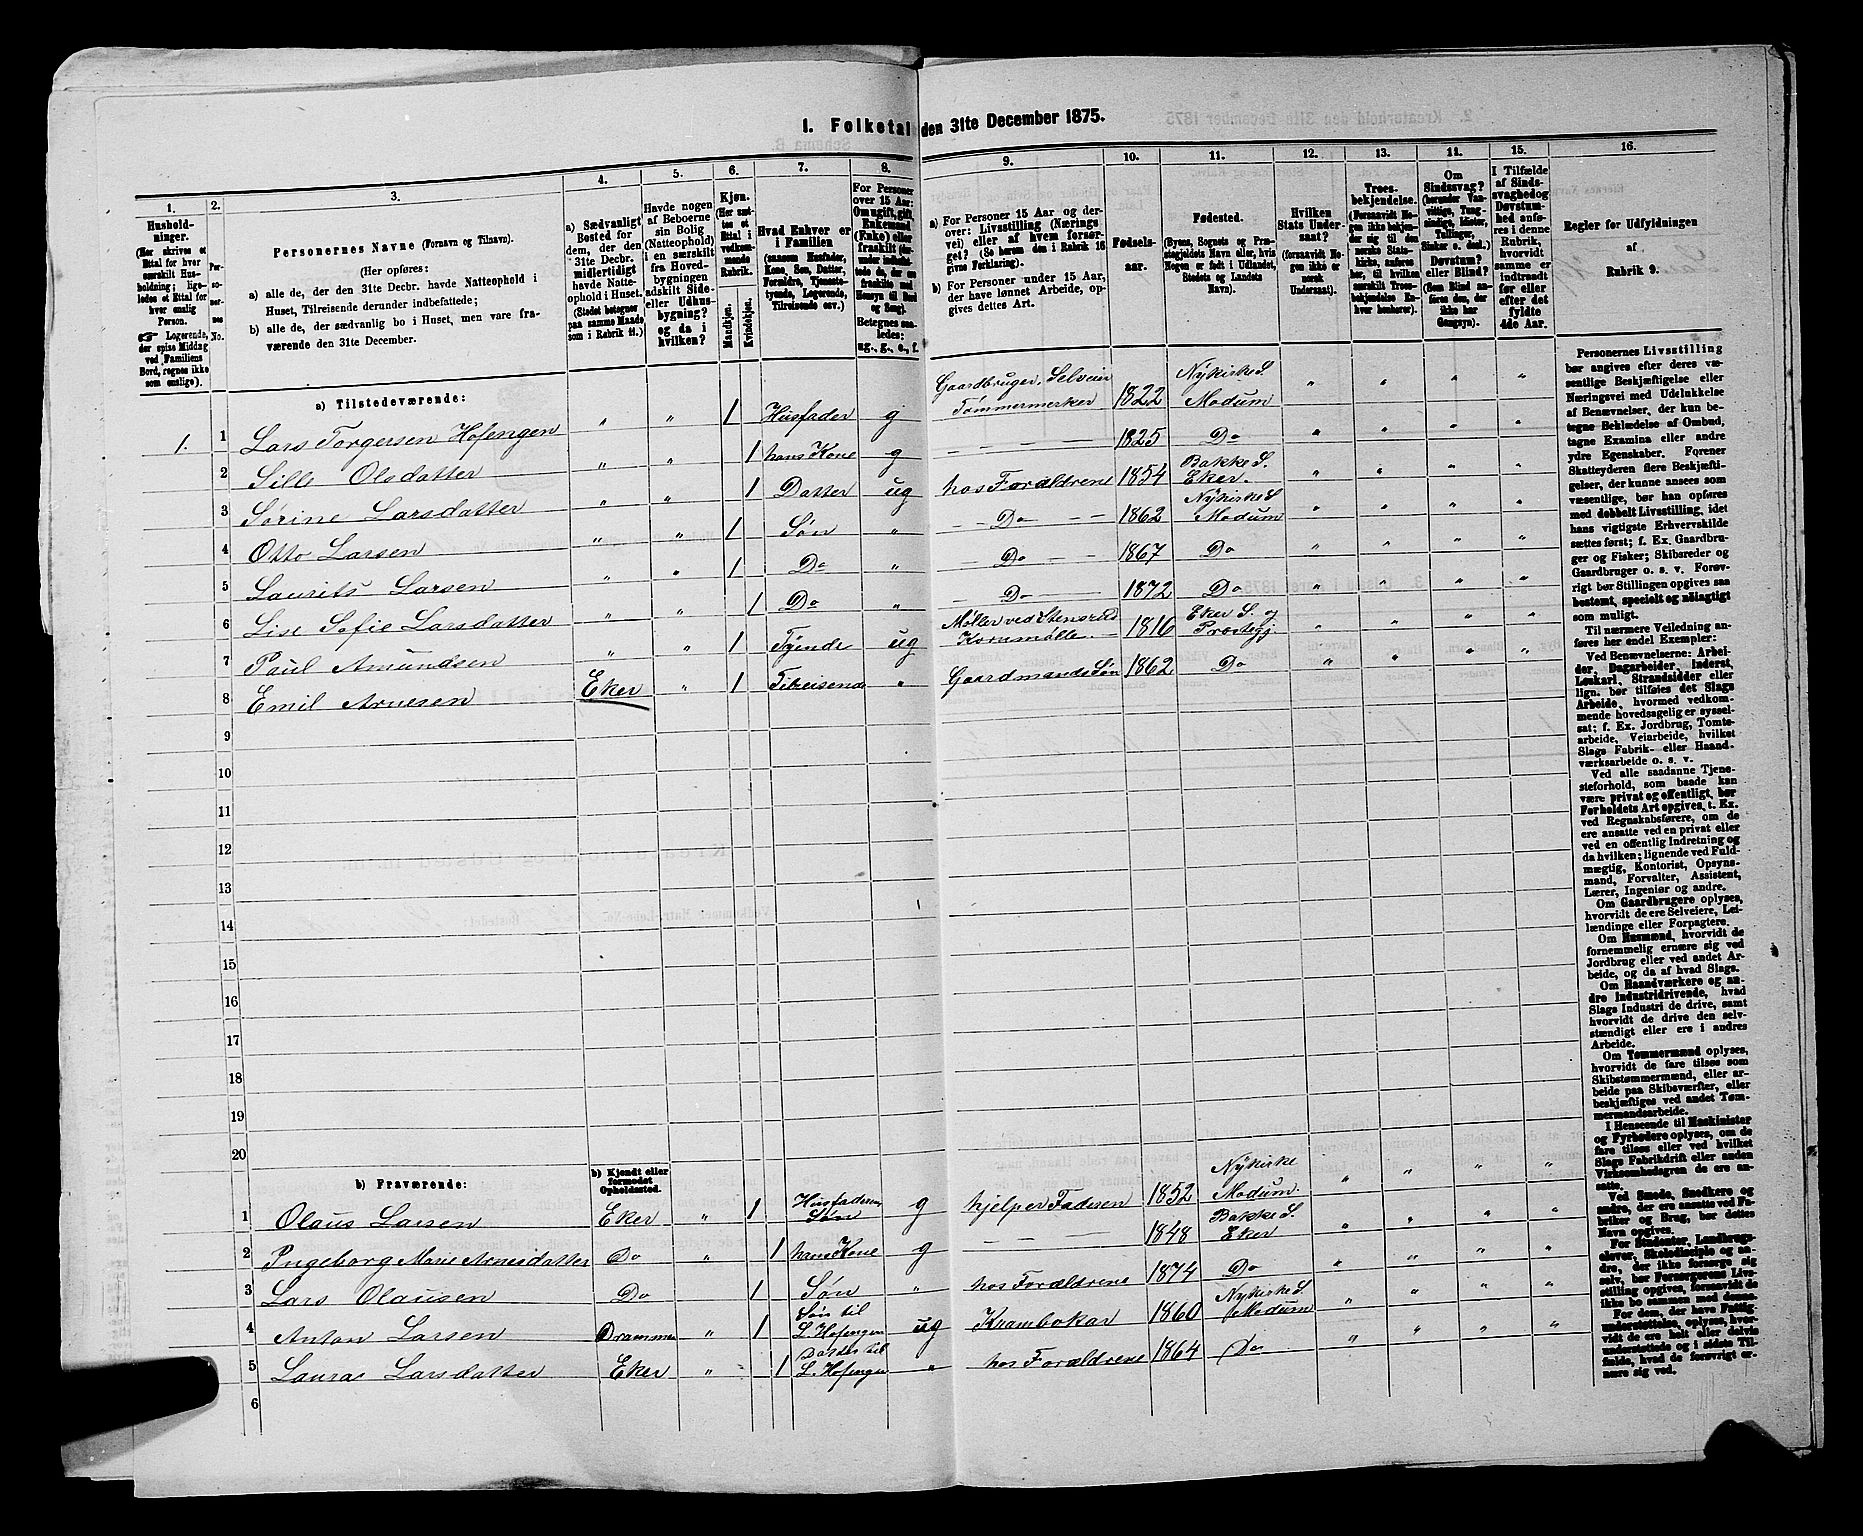 1. Folketal den 31te December 1875.
1.
2.
3.
4.
5.
6.
7.
8.
9.
10.
11.
12.
13.
14.
15.
16.
Husholdninger.
(Her skrives et Ettal for hver særskilt Husholdning; ligeledes et Ettal for hver enslig Person.
☞ Logerende, der spise Middag ved Familiens Bord, regnes ikke som enslige).
Personernes No.
Personernes Navne (Fornavn og Tilnavn).
(Her opføres:
a) alle de, der den 31te Decbr. havde Natteophold i Huset, Tilreisende derunder indbefattede;
b) alle de, der sædvanlig bo i Huset, men vare fraværende den 31te December.
a) Sædvanligt Bosted for dem, der den 31te Decbr. midlertidigt havde Natteophold i Huset.
(Stedet betegnes paa samme Maade som i Rubrik 11.)
Havde nogen af Beboerne sin Bolig (Natteophold) i en særskilt fra Hovedbygningen adskilt Side- eller Udhusbygning? og da i hvilken?
Kjøn.
(Her sættes et Ettal i vedkommende Rubrik.
Mandkjøn.
Kvindekjøn.
Hvad Enhver er i Familien
(saasom Husfader, Kone, Søn, Datter, Forældre, Tjenestetyende, Logerende, Tilreisende osv.)
For Personer over 15 Aar: Om ugift, gift, Enkemand (Enke) eller fraskilt
Betegnes saaledes: ug., g., e., f.
a) For Personer 15 Aar og derover: Livsstilling (Næringsvei) eller af hvem forsørget? (Se herom den i Rubrik 16 givne Forklaring).
b) For Personer under 15 Aar, der have lønnet Arbeide, opgives dettes Art.
Fødselsaar.
Fødested.
(Byens, Sognets og Præstegjeldets Navn, eller, hvis Nogen er født i Udlandet, Stedets og Landets Navn).
Hvilken Stats Undersaat?
(forsaavidt Nogen ikke er norsk Undersaat).
Troesbekjendelse.
(Forsaavidt Nogen ikke bekjender sig til den norske Statskirke, anføres her, til hvilken særskilt Troesbekjendelse Enhver henhører).
Om Sindssvag? (herunder Vanvittige, Tungsindige, Idioter, Tullinger, Sinker o. desl.) Døvstum? eller Blind? (Som Blind anføres den, der ikke har Gangsyn).
I Tilfælde af Sindssvaghed og Døvstumhed anføres i denne Rubrik, hvorvidt samme er indtraadt før eller efter det fyldte 4de Aar.
Regler for Udfyldningen
af
Rubrik 9.
a) Tilstedeværende:
1. 1 Lars Torgersen Hofengen " " 1 Husfader g Gaardbruger, Selveier Tømmermerker 1822 Nykirke S. Modum " " " "
2 Sille Olsdatter " " 1 hans Kone g — — — 1825 Do " " " "
3 Sørine Larsdatter " " 1 Datter ug hos Forældrene 1854 Bakke S. Eker. " " " "
4 Otto Larsen " " 1 Søn " — Do — — 1862 Nykirke S Modum " " " "
5 Laurits Larsen " " 1 Do " — Do — — 1867 Do " " " "
6 Lise Sofie Larsdatter " " 1 Do " Do — — 1872 Do " " " "
7 Paul Amundsen " " 1 Tyende ug Møller ved Stensrud Kornmølle 1816 Eker S. og Prestegj. " " " "
8 Emil Arnesen Eker " 1 Tilreisende " Gaardmands Søn 1862 Do " " " "
9
10
11
12
13
14
15
16
17
18
19
20
b) Fraværende:
b) Kjendt eller formodet Opholdssted.
1 Olaus Larsen Eker " 1 Husfaderens Søn g hjelper Faderen 1852 Nykirke Modum " " " "
2 Ingeborg Marie Arnesdatter Do " 1 hans Kone g — — — 1848 Bakke S. Eker " " " "
3 Lars Olausen Do 1 Søn " hos Forældrene 1874 Do " " " "
4 Anton Larsen Drammen " 1 Søn til L. Hofengen ug Krambokar 1860 Nykirke S. Modum " " " "
5 Lauras Larsdatter Eker " 1 Datter til L. Hofengen " hos Forældrene 1864 Do " " " "
6
Personernes Livsstilling bør angives efter deres væsentlige Beskjæftigelse eller Næringsvei med Udelukkelse af Benævnelser, der kun betegne Beklædelse af Ombud, tagne Examina eller andre ydre Egenskaber. Forener Skatteyderen flere Beskjæftigelser, der kunne ansees som væsentlige, bør han opføres med dobbelt Livsstilling, idet hans vigtigste Erhvervskilde sættes først; f. Ex. Gaardbruger og Fisker; Skibsreder og Gaardbruger o. s. v. Forøvrigt bør Stillingen opgives saa bestemt, specielt og nøiagtigt som muligt.
Til nærmere Veiledning anføres her endel Exempler:
Ved Benævnelserne: Arbeider, Dagarbeider, Inderst, Løskarl, Strandsidder eller lign. bør tilføies det Slags Arbeide, hvormed vedkommende hovedsagelig er sysselsat; f. Ex. Jordbrug, Tomtearbeide, Veiarbeide, hvilket Slags Fabrik- eller Haandværksarbeide o. s. v.
Ved alle saadanne Tjenesteforhold, som baade kan være privat og offentligt, bør Forholdets Art opgives, t. Ex. ved Regnskabsførere, om de ere ansatte ved en privat eller ved en offentlig Indretning og da hvilken; lignende ved Fuldmægtig, Kontorist, Opsynsmand, Forvalter, Assistent, Lærer, Ingeniør og andre.
Om Gaardbrugere oplyses, hvorvidt de ere Selveiere, Leilændinge eller Forpagtere.
Om Husmænd, hvorvidt de fornemmelig ernære sig ved Jordbrug eller ved andet Arbeide, og da af hvad Slags.
Om Haandværkere og andre industridrivende, hvad Slags Industri de drive, samt hvorvidt de drive den selvstændigt eller ere i andres Arbeide.
Om Tømmermænd oplyses, hvorvidt de fare tilsøs som Skibstømmermænd, eller arbeide paa Skibsværfter, eller beskjæftiges ved andet Tømmermandsarbeide.
I Henseende til Maskinister og Fyrbødere oplyses, om de fare tilsøs eller ved hvilket Slags Fabrikdrift eller anden Virksomhedsgren de ere ansatte.
Ved Smede, Snedkere og andre, der ere ansatte ved Fabriker og Brug, bør dettes Navn opgives.
For Studenter, Landbrugselever, Skoledisciple og andre, der ikke forsørge sig selv, bør Forsørgerens Livsstilling opgives, forsaavidt de ikke bo sammen med denne.
For dem, der have Fattigunderstøttelse, oplyses, hvorvidt de ere helt eller delvis understøttede og i sidste Tilfælde, hvad de forøvrigt ernære sig ved.